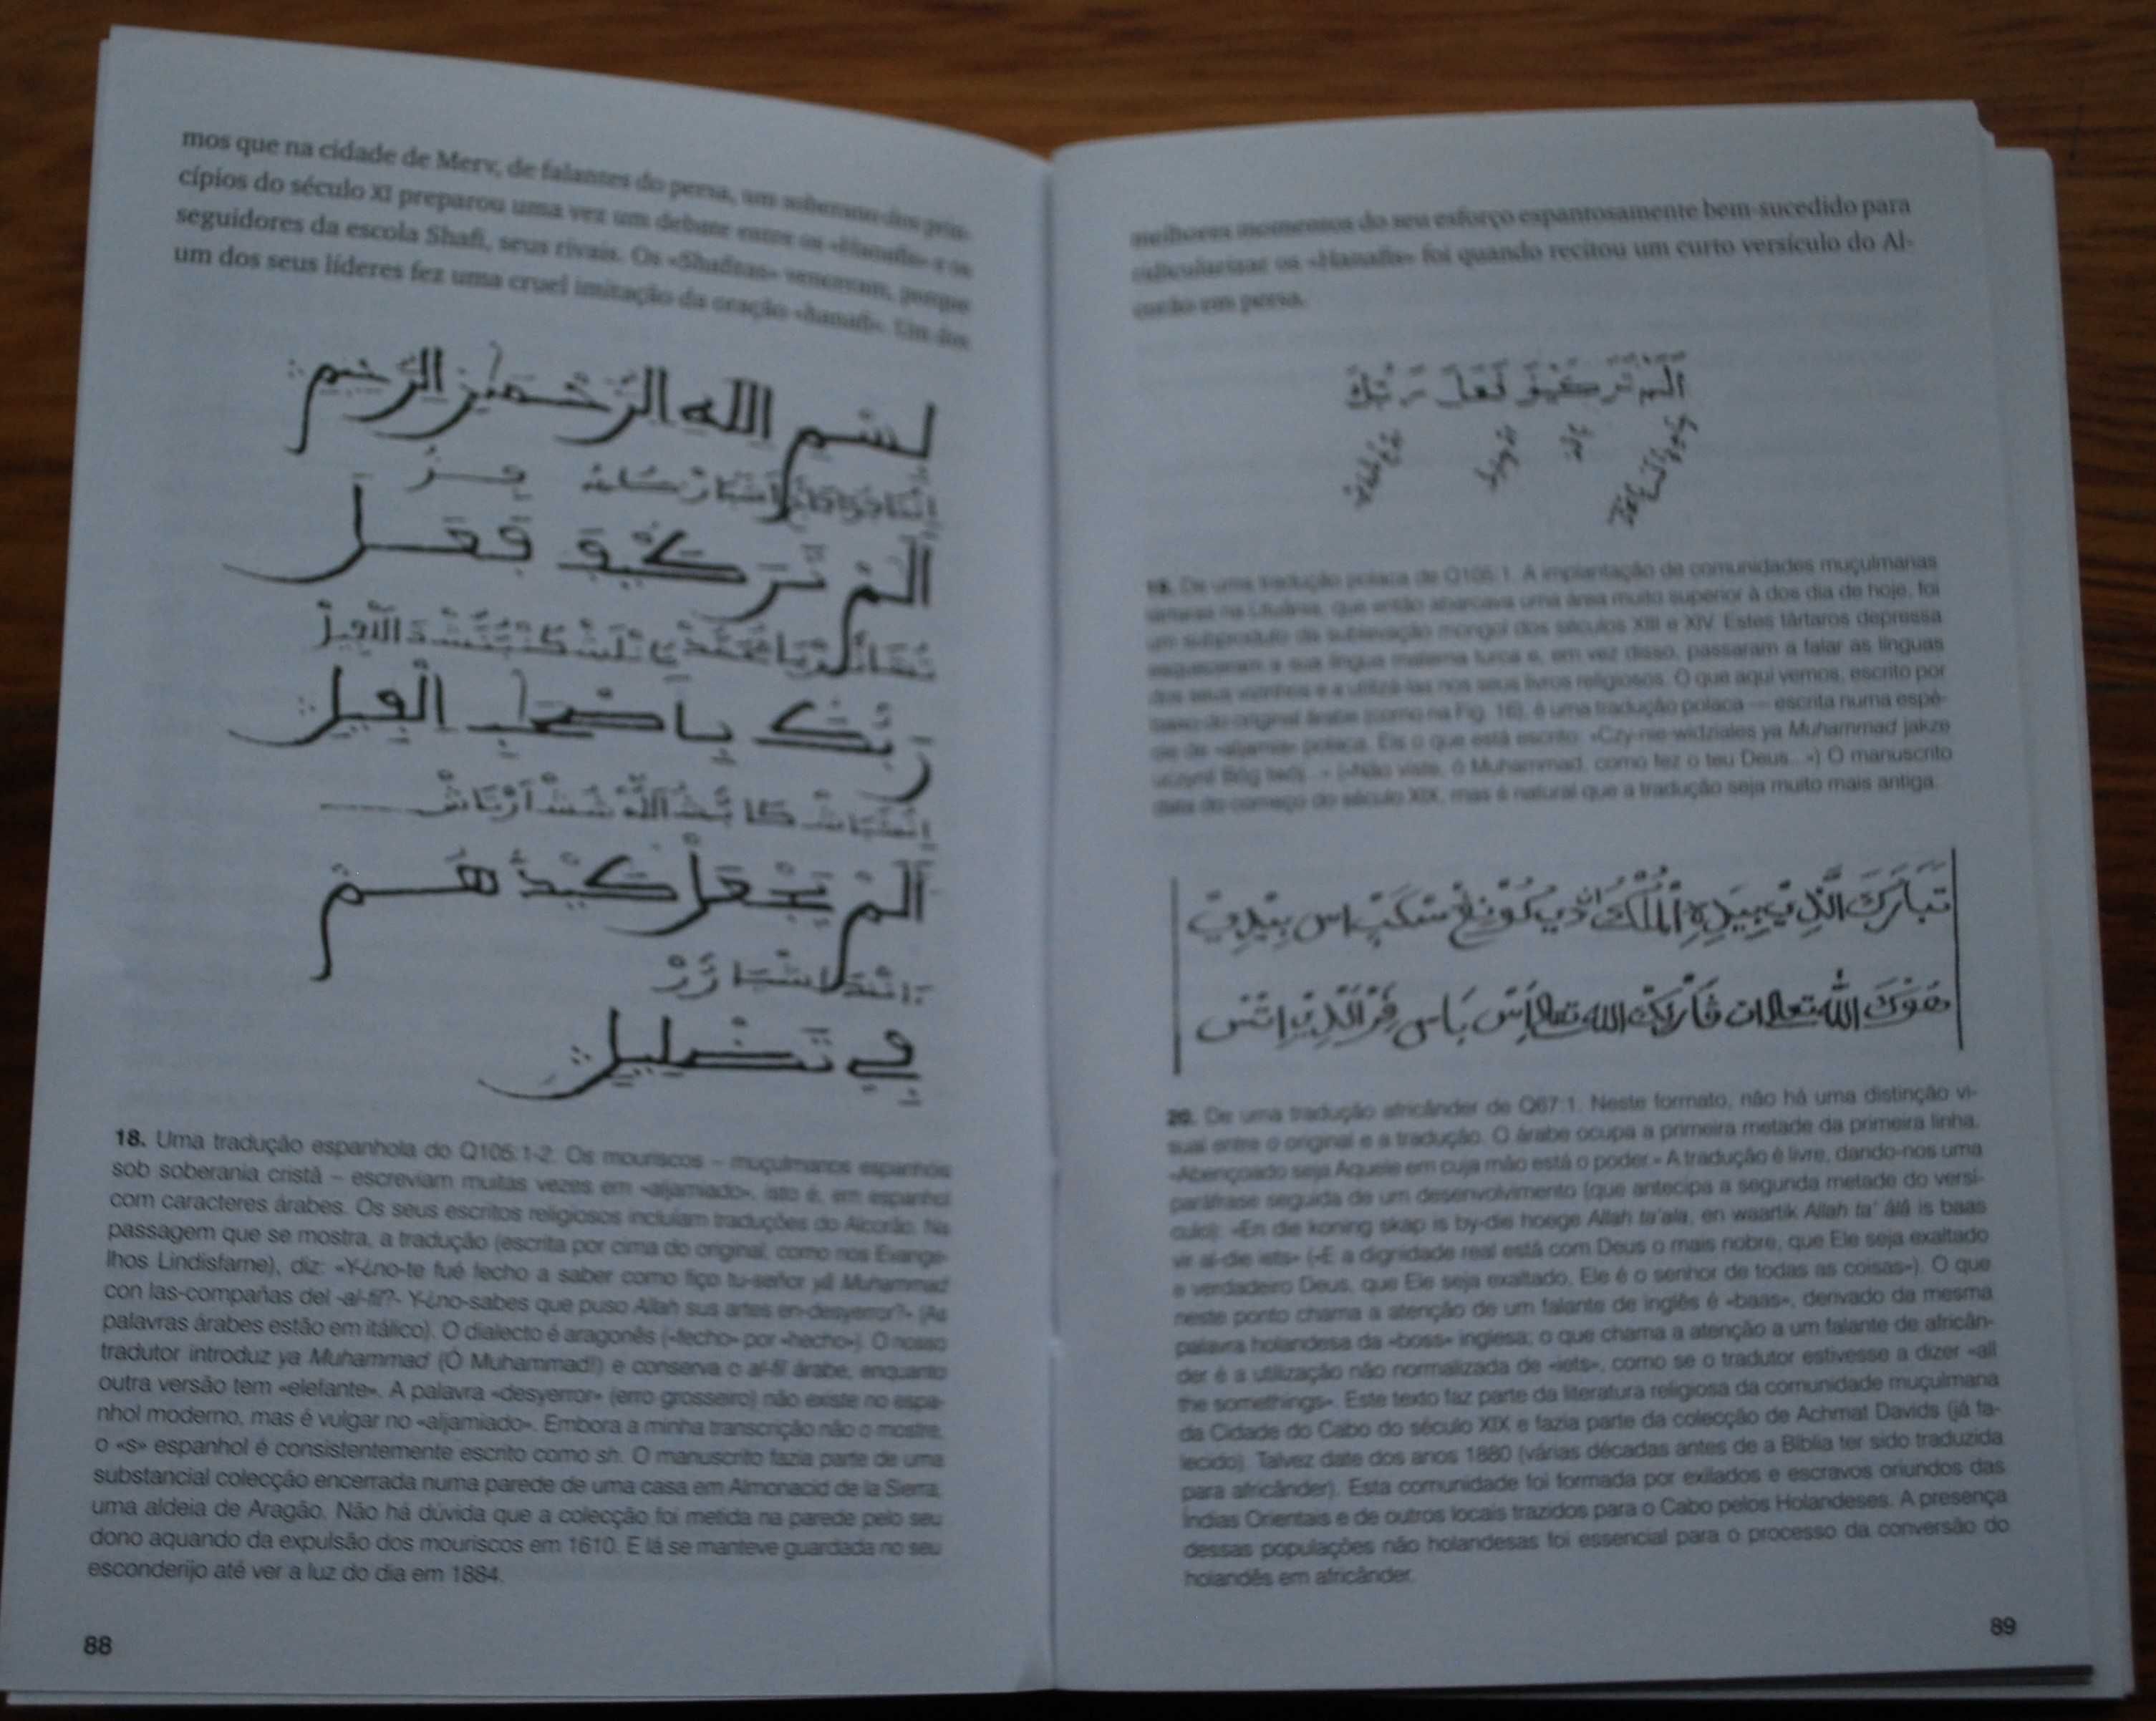 mos que na cidade de Merv, de falantes do persa, um soberano dos prin-
cípios do século XI preparou uma vez um debate entre os «Hanafis» e os
seguidores da escola Shafi, seus rivais. Os «Shafitas» venceram, porque
um dos seus líderes fez uma cruel imitação da oração «hanafi». Um dos
بسم الله الرحمن الرحيم
ألم تر كيف فعل
ربك بأصحاب الفيل
ألم يجعل كيدهم
في تضليل
18. Uma tradução espanhola do Q105:1-2. Os mouriscos – muçulmanos espanhóis
sob soberania cristã – escreviam muitas vezes em «aljamiado», isto é, em espanhol
com caracteres árabes. Os seus escritos religiosos incluíam traduções do Alcorão. Na
passagem que se mostra, a tradução (escrita por cima do original, como nos Evange-
lhos Lindisfarne), diz: «Y-¿no-te fué fecho a saber como fiço tu-señor yâ Muhammad
con las-compañas del -al-fil?- Y-¿no-sabes que puso Allah sus artes en-desyerror?» (As
palavras árabes estão em itálico). O dialecto é aragonês («fecho» por «hecho»). O nosso
tradutor introduz ya Muhammad (Ó Muhammad!) e conserva o al-fil árabe, enquanto
outra versão tem «elefante». A palavra «desyerror» (erro grosseiro) não existe no espa-
nhol moderno, mas é vulgar no «aljamiado». Embora a minha transcrição não o mostre,
o «s» espanhol é consistentemente escrito como sh. O manuscrito fazia parte de uma
substancial colecção encerrada numa parede de uma casa em Almonacid de la Sierra,
uma aldeia de Aragão. Não há dúvida que a colecção foi metida na parede pelo seu
dono aquando da expulsão dos mouriscos em 1610. E lá se manteve guardada no seu
esconderijo até ver a luz do dia em 1884.
88
melhores momentos do seu esforço espantosamente bem-sucedido para
ridicularizar os «Hanafis» foi quando recitou um curto versículo do Al-
corão em persa.
ألم تر كيف فعل ربك
19. De uma tradução polaca de Q105:1. A implantação de comunidades muçulmanas
tártaras na Lituânia, que então abarcava uma área muito superior à dos dia de hoje, foi
um subproduto da sublevação mongol dos séculos XIII e XIV. Estes tártaros depressa
esqueceram a sua língua materna turca e, em vez disso, passaram a falar as línguas
dos seus vizinhos e a utilizá-las nos seus livros religiosos. O que aqui vemos, escrito por
baixo do original árabe (como na Fig. 16), é uma tradução polaca — escrita numa espé-
cie de «aljamia» polaca. Eis o que está escrito: «Czy-nie-widziales ya Muhammad jakze
(«Não viste, ó Muhammad, como fez o teu Deus...») O manuscrito
data do começo do século XIX, mas é natural que a tradução seja muito mais antiga.
تبارك الذي بيده الملك
20. De uma tradução africânder de Q67:1. Neste formato, não há uma distinção vi-
sual entre o original e a tradução. O árabe ocupa a primeira metade da primeira linha.
«Abençoado seja Aquele em cuja mão está o poder.» A tradução é livre, dando-nos uma
paráfrase seguida de um desenvolvimento (que antecipa a segunda metade do versí-
culo): «En die koning skap is by-die hoege Allah ta'ala, en waartik Allah ta' álâ is baas
vir al-die iets» («E a dignidade real está com Deus o mais nobre, que Ele seja exaltado
e verdadeiro Deus, que Ele seja exaltado, Ele é o senhor de todas as coisas»). O que
neste ponto chama a atenção de um falante de inglês é «baas», derivado da mesma
palavra holandesa da «boss» inglesa; o que chama a atenção a um falante de africân-
der é a utilização não normalizada de «iets», como se o tradutor estivesse a dizer «all
the somethings». Este texto faz parte da literatura religiosa da comunidade muçulmana
da Cidade do Cabo do século XIX e fazia parte da colecção de Achmat Davids (já fa-
lecido). Talvez date dos anos 1880 (várias décadas antes de a Bíblia ter sido traduzida
para africânder). Esta comunidade foi formada por exilados e escravos oriundos das
Índias Orientais e de outros locais trazidos para o Cabo pelos Holandeses. A presença
dessas populações não holandesas foi essencial para o processo da conversão do
holandês em africânder.
89